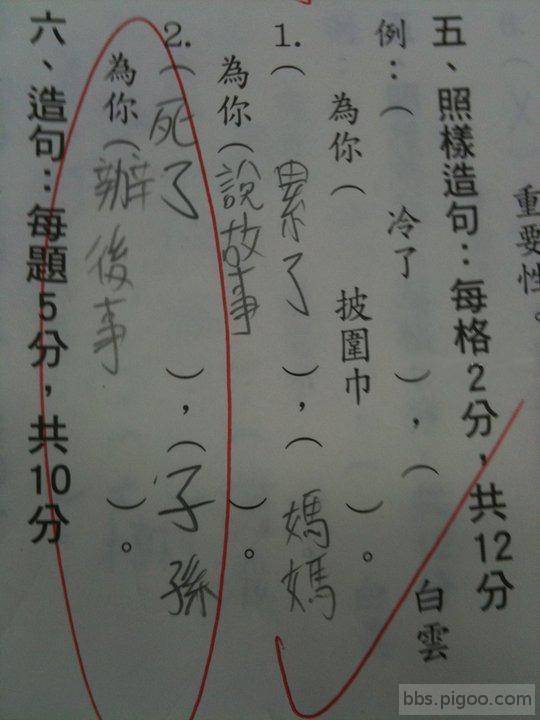 重要性。
五、照樣造句：每格2分，共12分
例：（冷了），（白雲
為你（披圍巾）。
1.（累了），（媽媽
為你（說故事）。
2.（死了），（子孫
為你（辦後事）。
六、造句：每題5分，共10分
bbs.pigoo.com